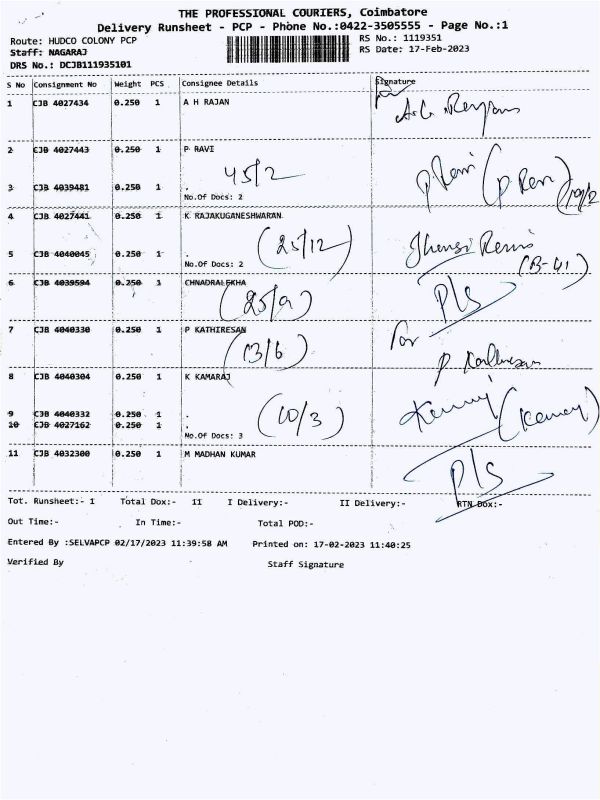 THE PROFESSIONAL COURIERS, Coimbatore
Delivery Runsheet - PCP - Phone No.:0422-3505555 - Page No.:1
Route: HUDCO COLONY PCP RS No.: 1119351
Staff: NAGARAJ RS Date: 17-Feb-2023
DRS No.: DCJB111935101
S No Consignment No Weight PCS Consignee Details Signature
1 CJB 4027434 0.250 1 A H RAJAN
2 CJB 4027443 0.250 1 P RAVI
45/2
3 CJB 4039481 0.250 1 .
No.Of Docs: 2
4 CJB 4027441 0.250 1 K RAJAKUGANESHWARAN
(25/12)
5 CJB 4040045 0.250 1 .
No.Of Docs: 2 (B-41)
6 CJB 4039594 0.250 1 CHNADRALEKHA
(25/9) P/S
7 CJB 4040330 0.250 1 P KATHIRESAN
(13/6) For
8 CJB 4040304 0.250 1 K KAMARAJ
9 CJB 4040332 0.250 1 .
10 CJB 4027162 0.250 1 .
(10/3)
No.Of Docs: 3
11 CJB 4032300 0.250 1 M MADHAN KUMAR
P/S
Tot. Runsheet:- 1 Total Dox:- 11 I Delivery:- II Delivery:- RTN Dox:-
Out Time:- In Time:- Total POD:-
Entered By :SELVAPCP 02/17/2023 11:39:58 AM Printed on: 17-02-2023 11:40:25
Verified By Staff Signature